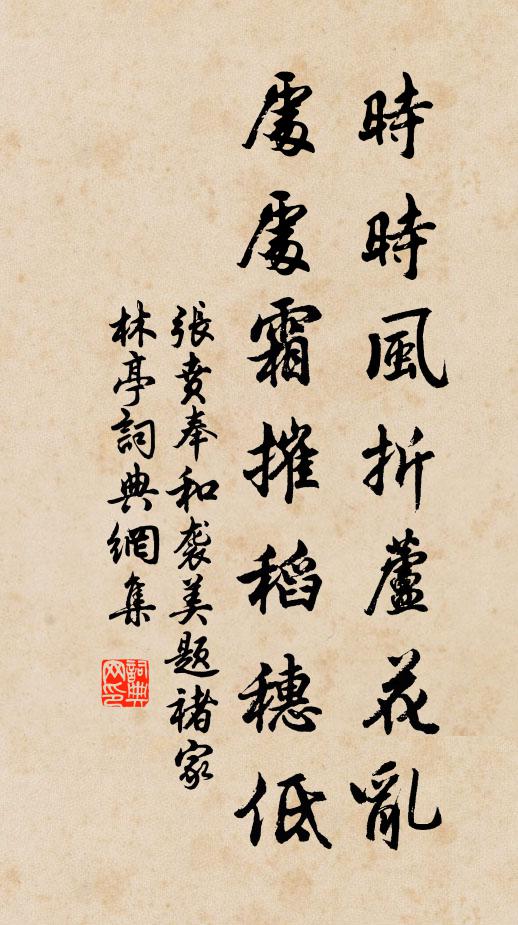 時時風折蘆花亂
處處霜摧稻穗低
張賁奉和袭美题褚家
林亭詞典網集
詞典网印